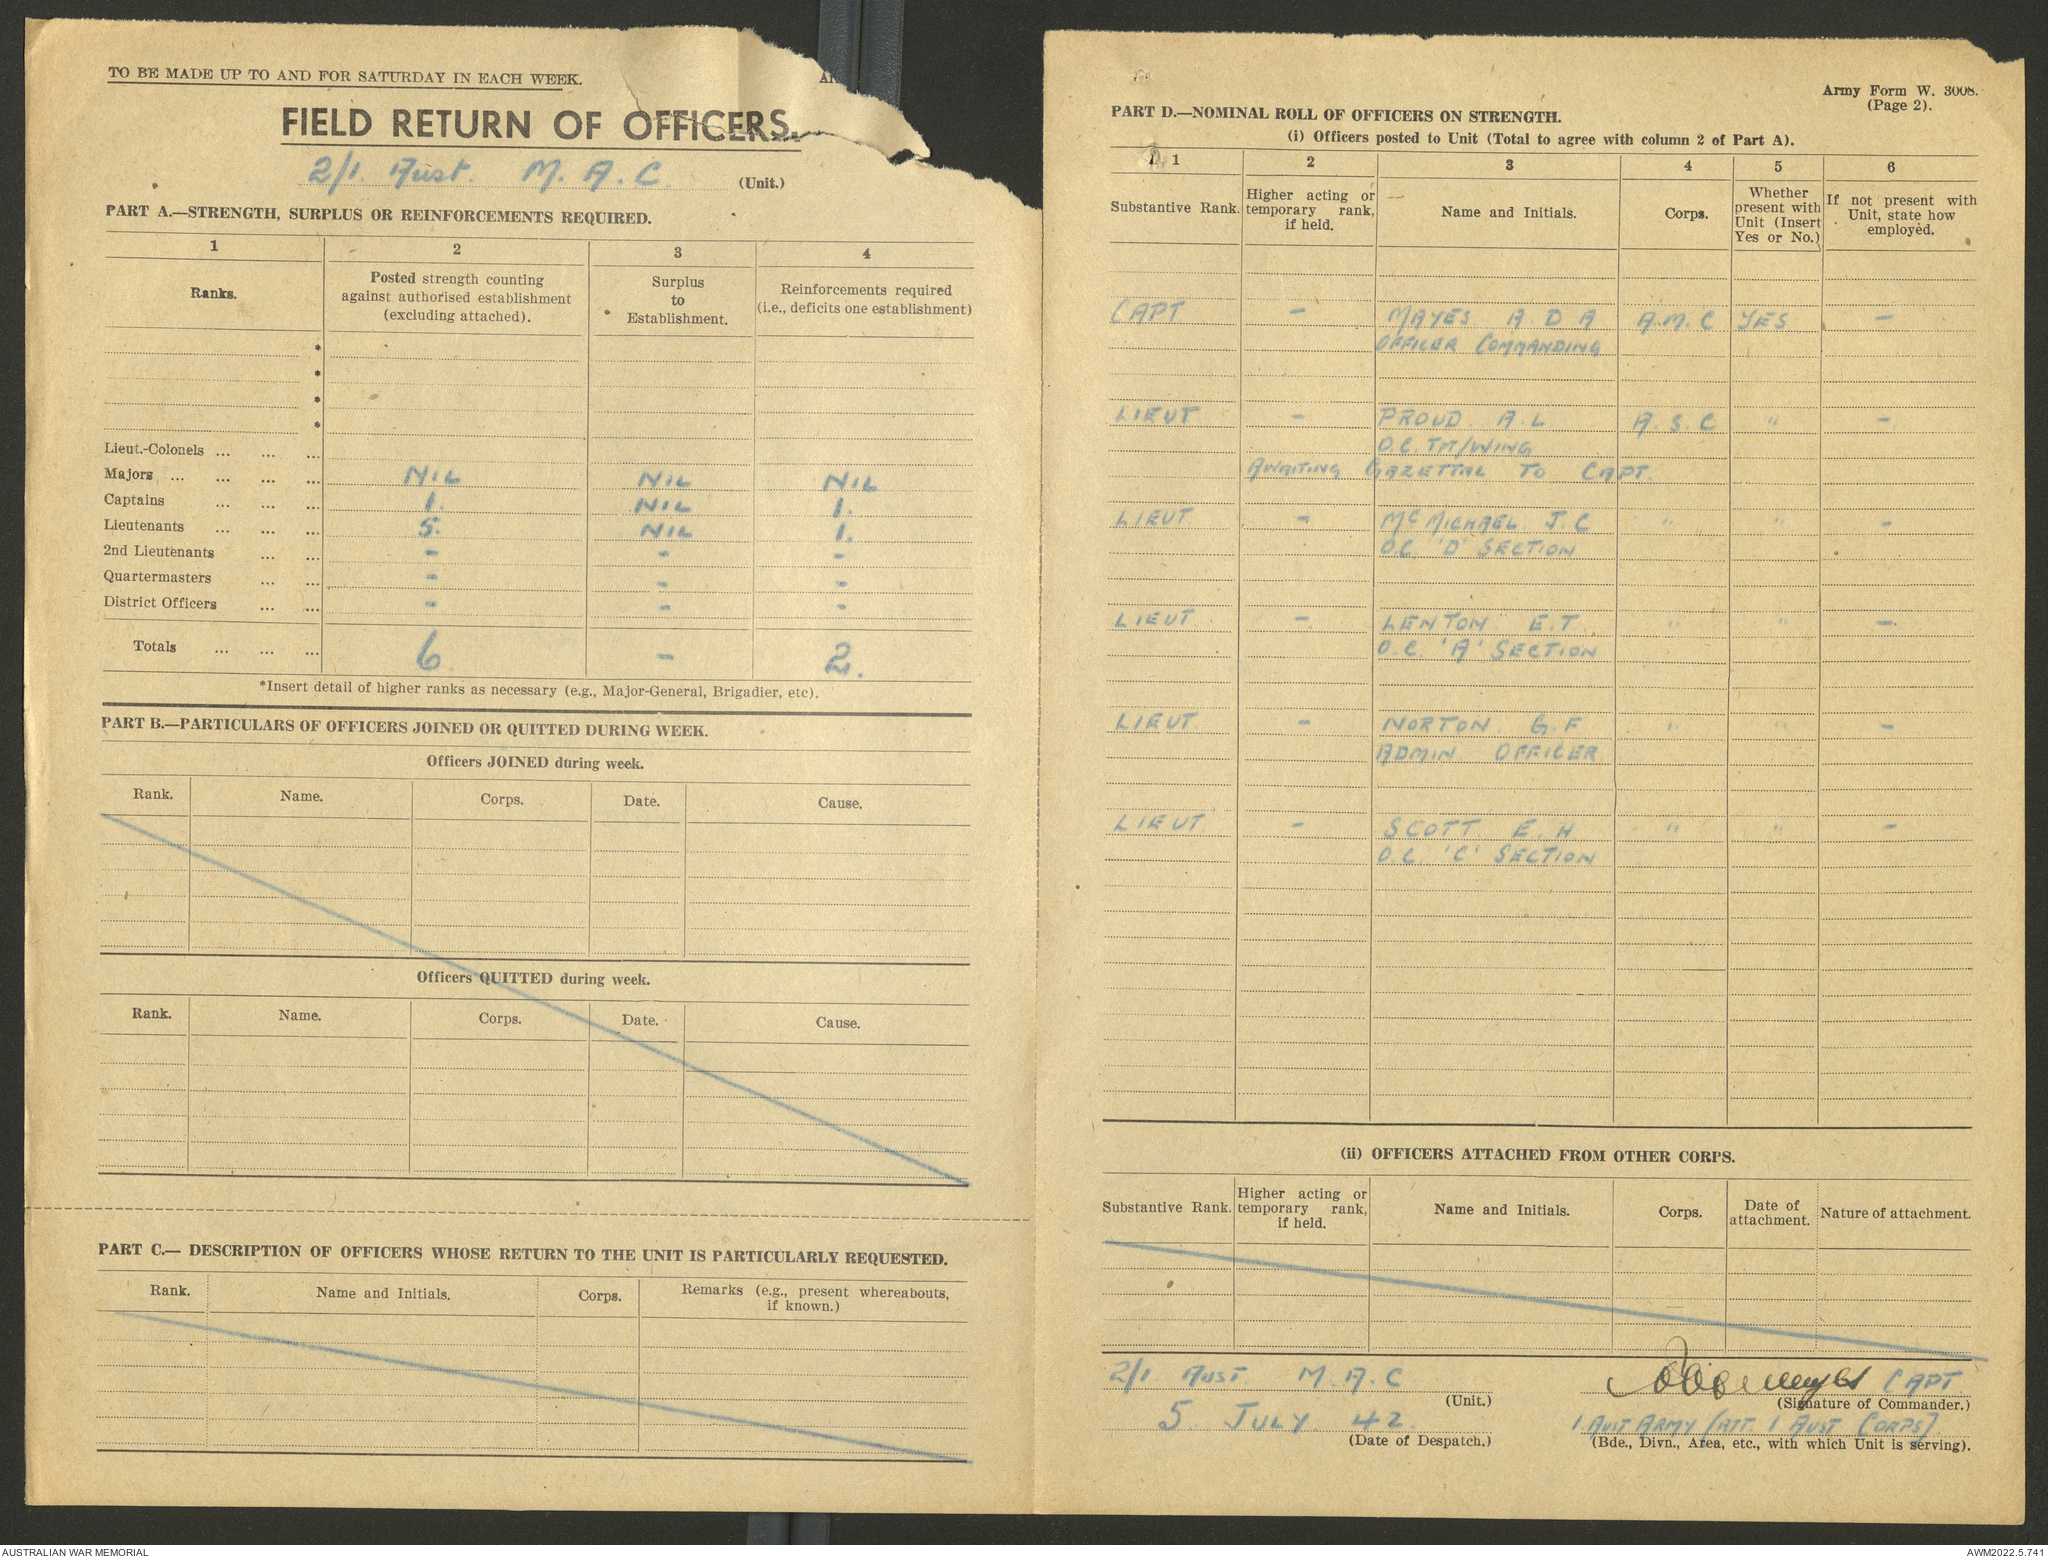 TO BE MADE UP TO AND FOR SATURDAY IN EACH WEEK.
FIELD RETURN OF OFFICERS.
2/1. Aust. M. A. C. (Unit.)
PART A.—STRENGTH, SURPLUS OR REINFORCEMENTS REQUIRED.
1 2 3 4
Ranks. Posted strength counting against authorised establishment (excluding attached). Surplus to Establishment. Reinforcements required (i.e., deficits one establishment)
*
*
*
*
Lieut.-Colonels ... ... ...
Majors ... ... ... ... NIL NIL NIL
Captains ... ... ... 1. NIL 1.
Lieutenants ... ... ... 5. NIL 1.
2nd Lieutenants ... ... - - -
Quartermasters ... ... - - -
District Officers ... ... - - -
Totals ... ... ... 6. - 2.
*Insert detail of higher ranks as necessary (e.g., Major-General, Brigadier, etc).
PART B.—PARTICULARS OF OFFICERS JOINED OR QUITTED DURING WEEK.
Officers JOINED during week.
Rank. Name. Corps. Date. Cause.
Officers QUITTED during week.
Rank. Name. Corps. Date. Cause.
PART C.— DESCRIPTION OF OFFICERS WHOSE RETURN TO THE UNIT IS PARTICULARLY REQUESTED.
Rank. Name and Initials. Corps. Remarks (e.g., present whereabouts, if known.)
Army Form W. 3008.
(Page 2).
PART D.—NOMINAL ROLL OF OFFICERS ON STRENGTH.
(i) Officers posted to Unit (Total to agree with column 2 of Part A).
1 2 3 4 5 6
Substantive Rank. Higher acting or temporary rank, if held. Name and Initials. Corps. Whether present with Unit (Insert Yes or No.) If not present with Unit, state how employed.
CAPT - MAYES A. D A A.M.C YES -
OFFICER COMMANDING
LIEUT - PROUD A.L A.S.C " -
O.C. TPT/WING
AWAITING GAZETTAL TO CAPT.
LIEUT - McMICHAEL J.C " " -
O.C. 'D' SECTION
LIEUT - LENTON E.T " " -
O.C. 'A' SECTION
LIEUT - NORTON G.F " " -
ADMIN OFFICER
LIEUT - SCOTT E.H " " -
O.C. 'C' SECTION
(ii) OFFICERS ATTACHED FROM OTHER CORPS.
Substantive Rank. Higher acting or temporary rank, if held. Name and Initials. Corps. Date of attachment. Nature of attachment.
2/1 AUST M.A.C (Unit.)
CAPT (Signature of Commander.)
5 JULY 42. (Date of Despatch.)
1 AUST ARMY (ATT. 1 AUST CORPS).
(Bde., Divn., Area, etc., with which Unit is serving).
AUSTRALIAN WAR MEMORIAL
AWM2022.5.741